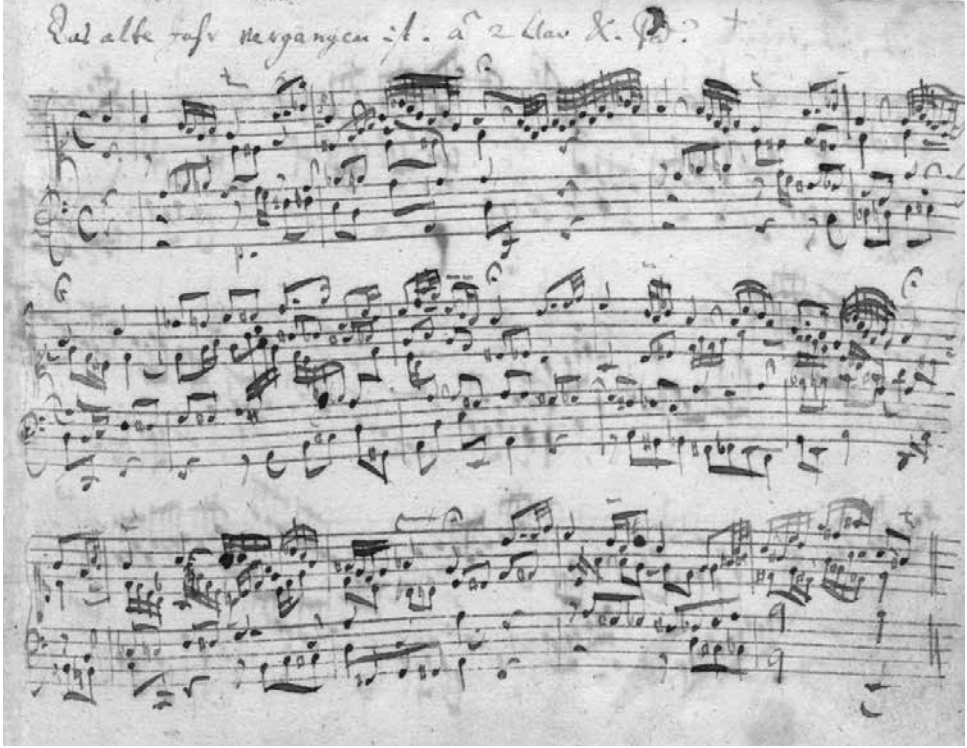 Das alte Jahr vergangen ist. â 2 Clav & Ped.